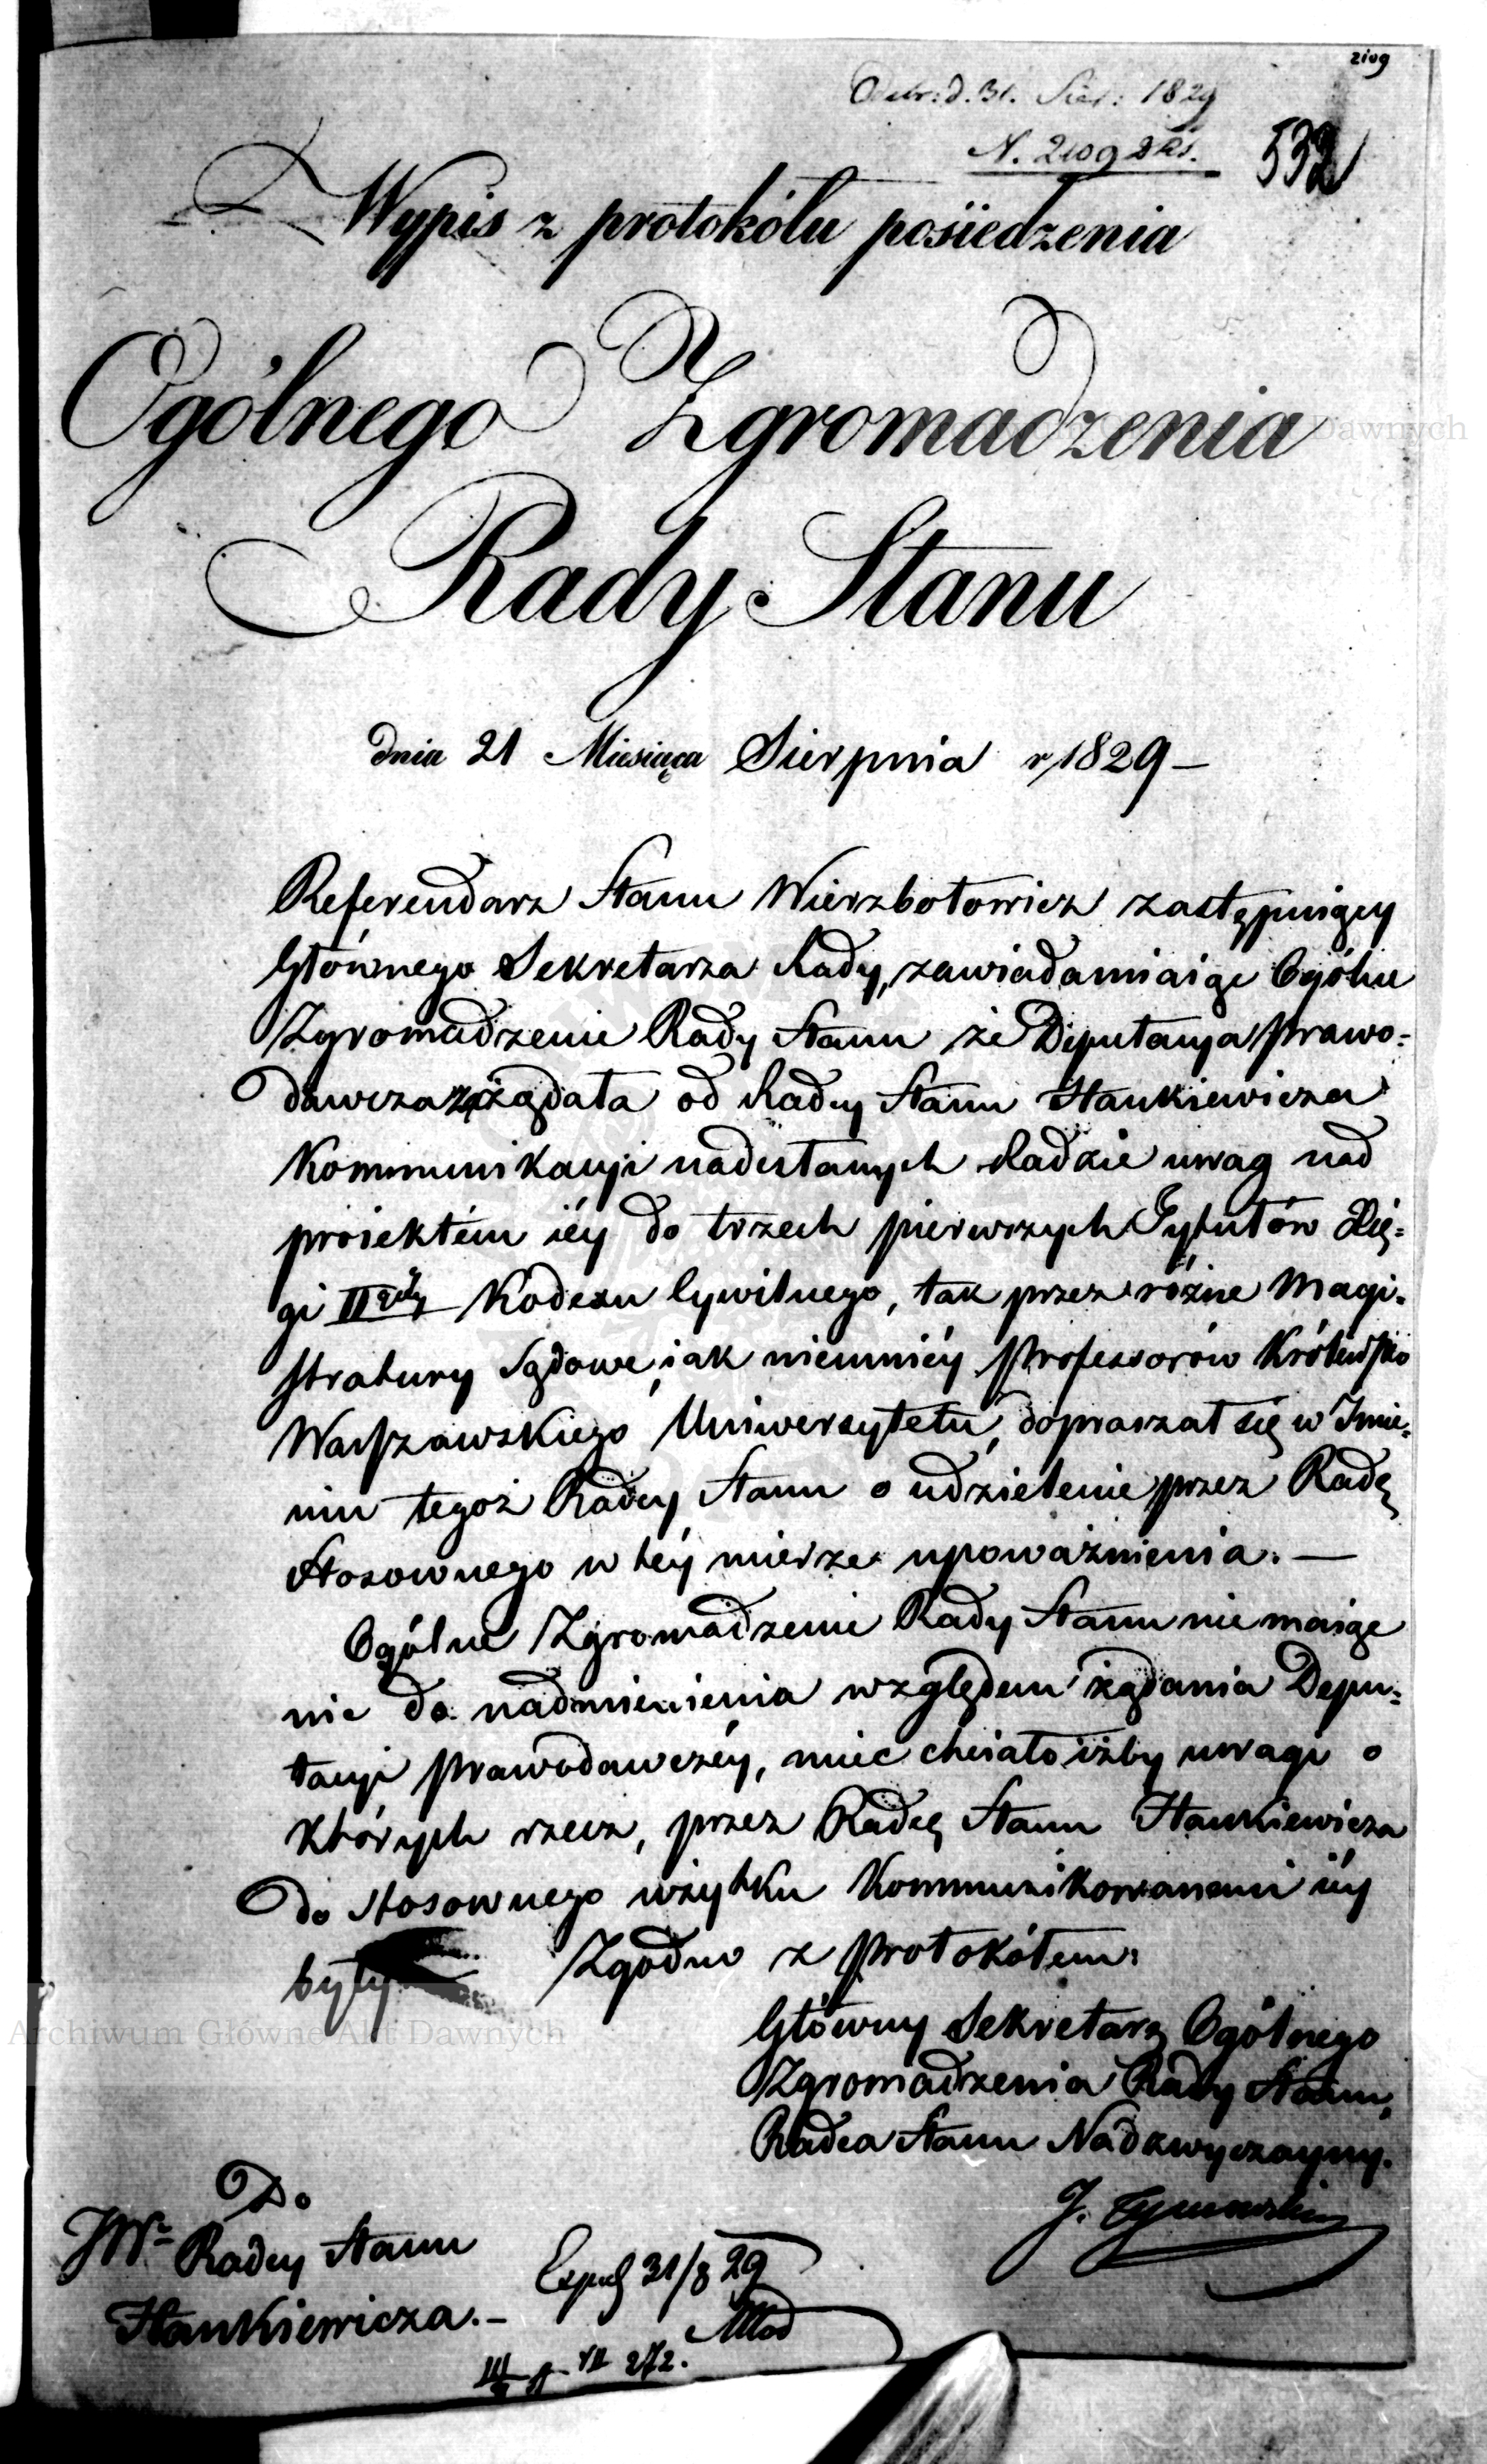 2109
Odebr: d. 31. Sier: 1829
N. 2109
532
Wypis z protokółu posiedzenia
Ogólnego Zgromadzenia
Rady Stanu
dnia 21 Miesiąca Sierpnia r/1829 –
Referendarz Stanu Wierzbołowicz zastępuiący
Głównego Sekretarza Rady, zawiadamiaiąc Ogólne
Zgromadzenie Rady Stanu że Deputacya Prawo-
dawcza zażądała od Radcy Stanu Hankiewicza
Kommunikacyi nadesłanych Radzie uwag nad
proiektém iéy do trzech pierwszych Tytułów Xię-
gi II giéy Kodexu Cywilnego, tak przez różne Magi-
stratury Sądowe, iak niemniéy Professorów Królewsko
Warszawskiego Uniwersytetu, dopraszał się w Imie-
niu tegoż Radcy Stanu o udzielenie przez Radę
stosownego w téy mierze upoważnienia. —
Ogólne Zgromadzenie Rady Stanu nie maiąc
nic do nadmienienia względem żądania Depu-
tacyi Prawodawczéy, mieć chciało iżby uwagi o
których rzecz, przez Radcę Stanu Hankiewicza
do stosownego użytku Kommunikowanemi iéy
były
Zgodno z Protokółem:
Główny Sekretarz Ogólnego
Zgromadzenia Rady Stanu,
Radca Stanu Nadzwyczayny.
J. Tymowski
Do
JW. Radcy Stanu
Hankiewicza. –
31/8 29
VII 272.
Archiwum Główne Akt Dawnych